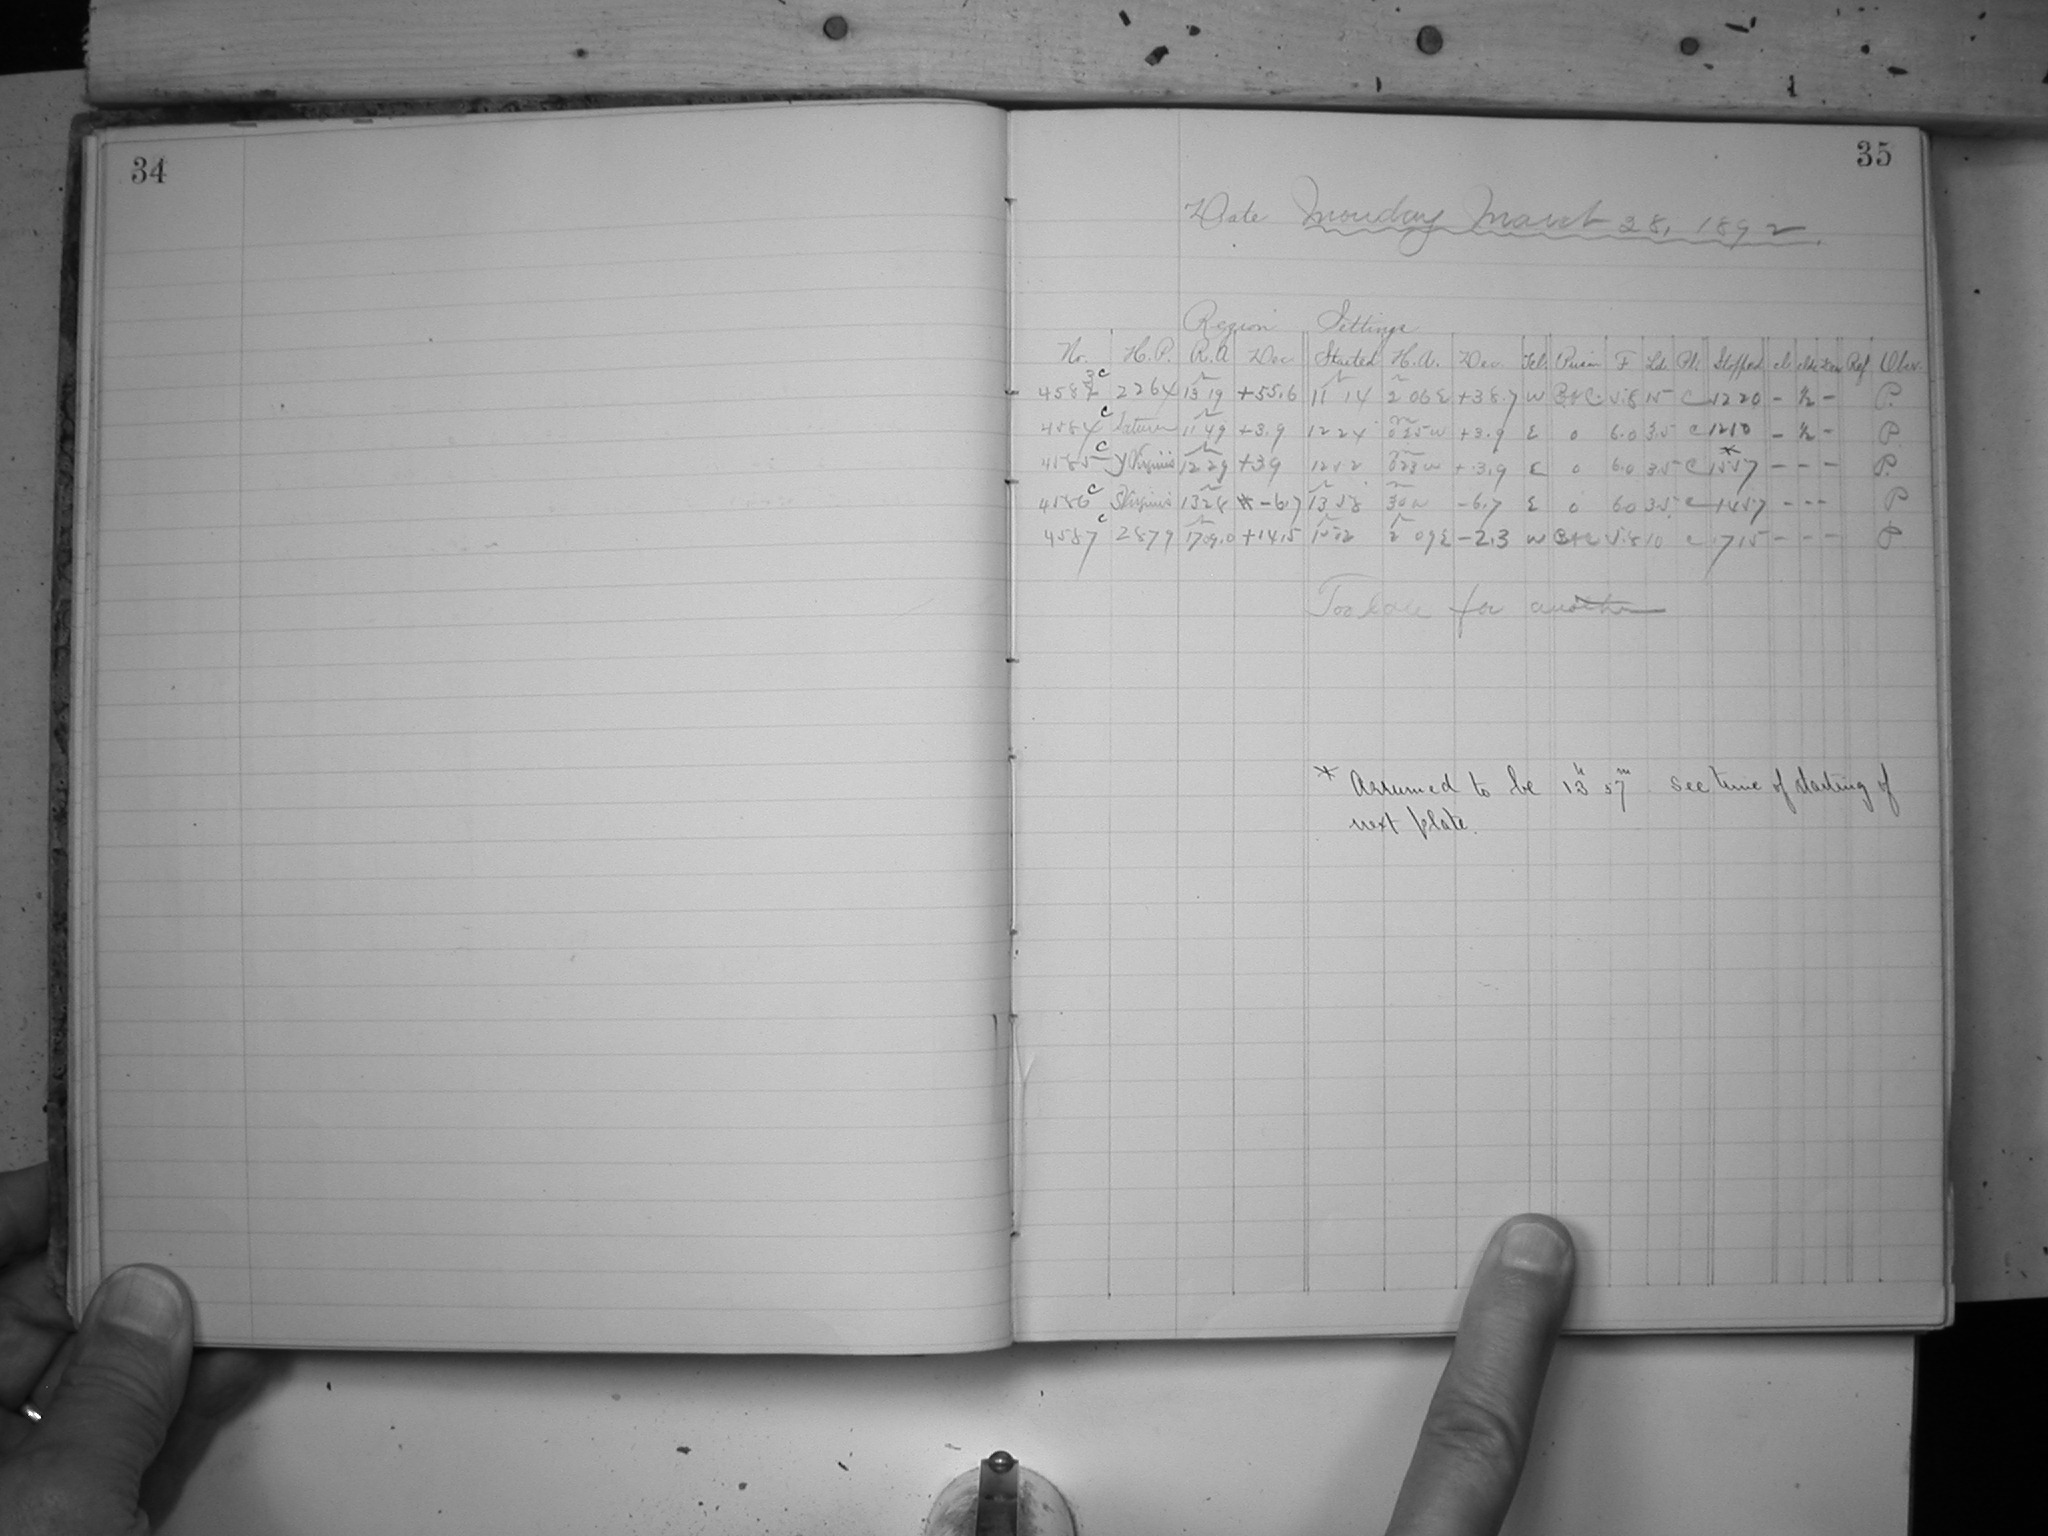 34
35
Date Monday March 28, 1892
Region Settings
No. H.P. R.A Dec Started H.A. Dec. Tel. Prism F Ld. Pl. Stopped Ref Obsr.
2264 13 19 +55.6 11 14 2 06 E +38.7 W 5.8 15 C 12 20 - ½ - P.
4584 C Saturn 11 49 +3.9 12 24 0 35 W +3.9 E 0 6.0 3.5 C - ½ - P
4585 C γ Virginis 12 29 +39 12 52 0 23 W +3.9 E 0 6.0 3.5 C 1557 * - - - P.
4586 C S Virginis 13 28 * -6.7 13 58 30 W -6.7 E 0 6.0 3.5 C 1457 - - - P
4587 C 2879 1709.0 +14.5 2 09 E -2.3 W 5.8 10 C 1715 - - - P
Too late for another
* Assumed to be 13h 57m see time of starting of
next plate.